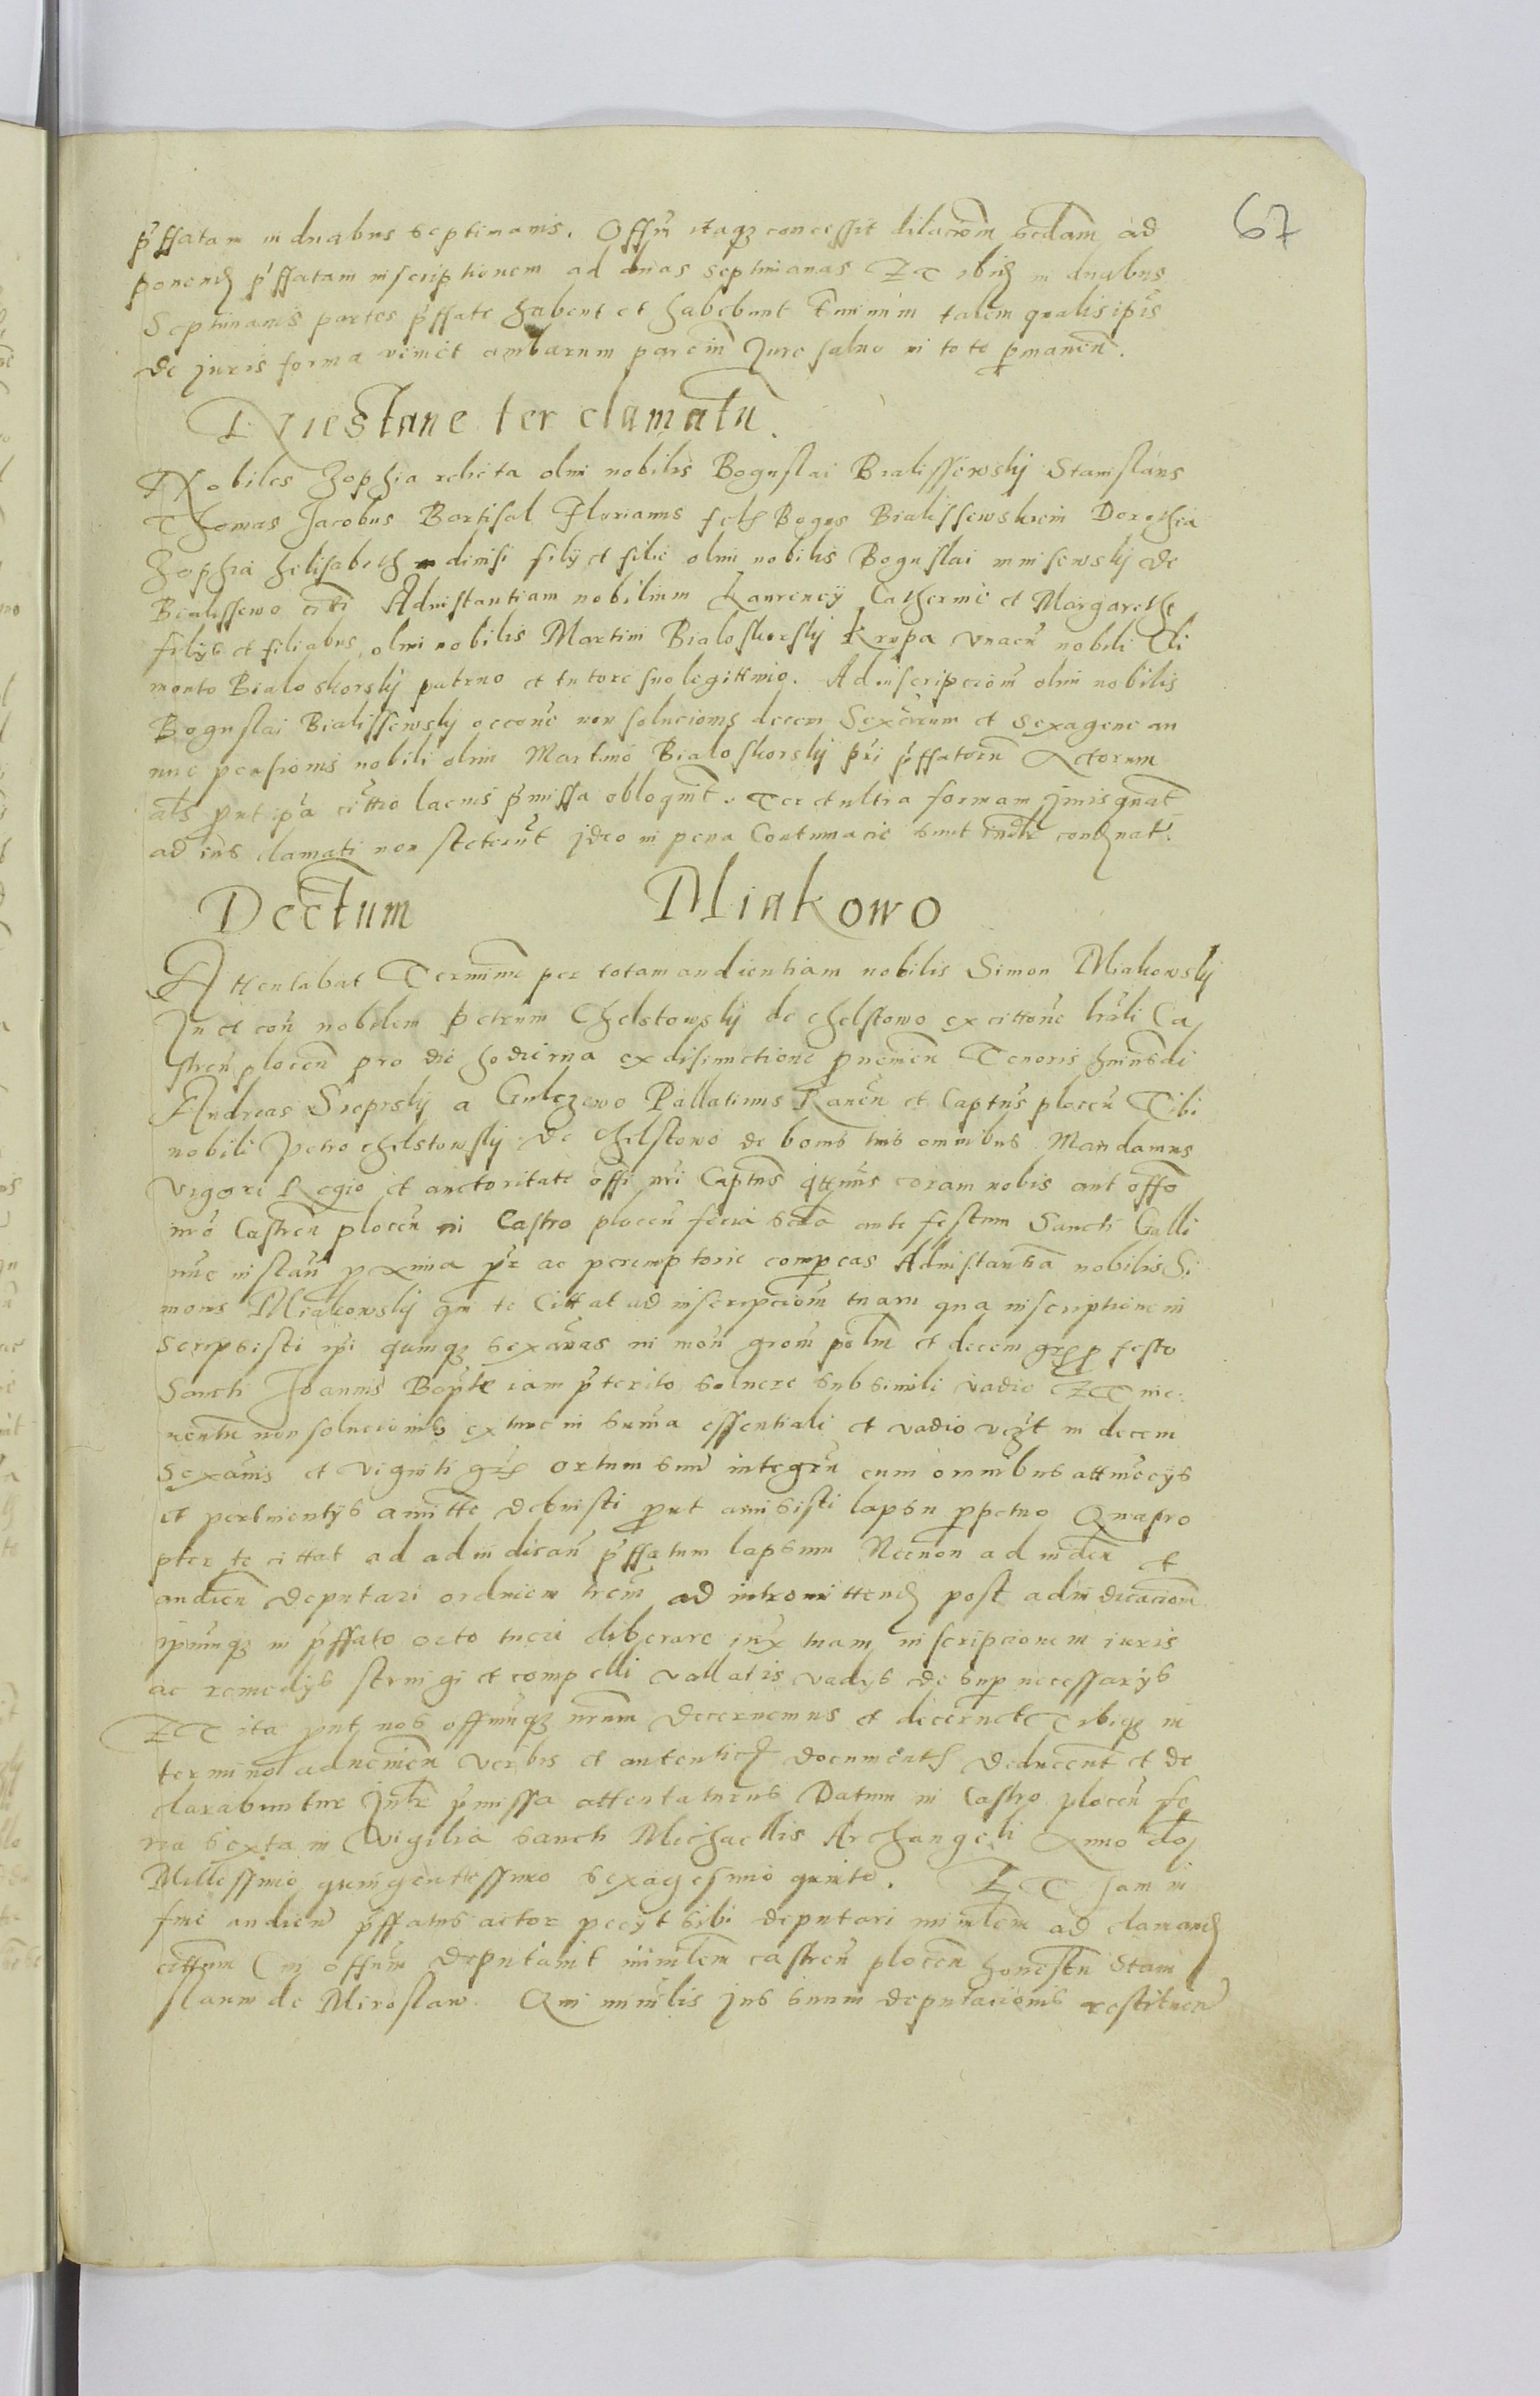 67
pffatam in duabus septimanis. Offm itaqz concessit dilacioem scdam ad
ponend pffatam inscriptionem ad duas septimanas ibid in duabus
Septimanis partes pffate habent et habebunt tminum talem qualis ipis
de juris forma venict ambarum parcium Jure saluo in toto pmanen.
ter clamatu.
Nobiles Zophia relicta olim nobilis Boguslai Bialissewskÿ Stanislaus
Thomas Jacobus Bartisol Florianus Bialissewskiem Dorothea
Zophia Helisabeth diuisi filÿ et filie olim nobilis Boguslai de
Bialissewo Ad instantiam nobilium Laurencÿ Catherine et Margarethe
filÿs et filiabus olim nobilis Martini Bialoskorskÿ Krupa vnacu nobili Cli
monto Bialoskorskÿ patruo et tutore suo legittimo. Ad inscripcionem olim nobilis
Boguslai Bialissewskÿ occone non solucionis decem Sexarum et sexagene an
nue pensionis nobili olim Martino Bialoskorskÿ pri pffatoru Actorum
als put ipa cittio lacius pmissa obloquit. Ter et ultra formam
ad ius clamati non steterut ideo in pena Contumacie sunt condnati.
Dectum Miakowo
Attentabat Terminu per totam audientiam nobilis Simon Miakowskÿ
In et con nobilem Petrum Chelstowskÿ de Chelstowo ex cittone lrali Ca
stren plocen pro die hodierna ex disiunctione puenien Tenoris huiusdi
Andreas Sieprskÿ a Gulczewo Pallatinus Rauen et Captus plocen Tibi
nobili Petro Chelstowskÿ de Chelstowo de bonis tuis omnibus Mandamus
vigore Regio et auctoritate offi nri Captus qttnus coram nobis aut offo
nro Castren plocen in Castro plocen feria scda ante festum Sancti Galli
nuc instan pxima pr ac peremptorie compeas Ad instantia nobilis Si
monis Miakowskÿ qui te Cittat ad inscripcionem tuam qua inscriptione in
scripsisti ipi quinqz sexanas in mon grom polm et decem gr p festo
Sancti Joannis Bapte iam pterito soluere sub simili vadio
uentu non solucionis extunc in suma essentiali et vadio vezt in decem
sexanis et viginti gr ortum suu integru cum omnibus attinecÿs
et pertinentÿs amitte debuisti put amisisti lapsu ppetuo Quapro
pter te cittat ad adiudicau pffatum lapsum Necnon ad viden et
audien deputari ordniem trem ad intromittend post adiudicacion
ipmqz in pffato orto tueri liberare iux tuam inscripcionem iuris
ac remedÿs stringi et compelli vallatis vadÿs de sup necessarÿs
ita put nos offmqz nrum decernemus et decernet Tibiqz in
termino adueniem verbis et autentics documents deducent et de
clarabuntur Intr pmissa attentaturus Datum in Castro plocen fe
ria sexta in vigilia sancti Michaellis Archangeli Anno doj
Millessimo quingentessimo sexagesimo quinto. Jam in
fine audien pffatus actor peciit sibi deputari ministrem ad clamand
cittum Cui offum deputauit ministrem castren plocen honestu Stani
slaum de Miroslaw. Qui minstlis jus suum deputacionis restituen